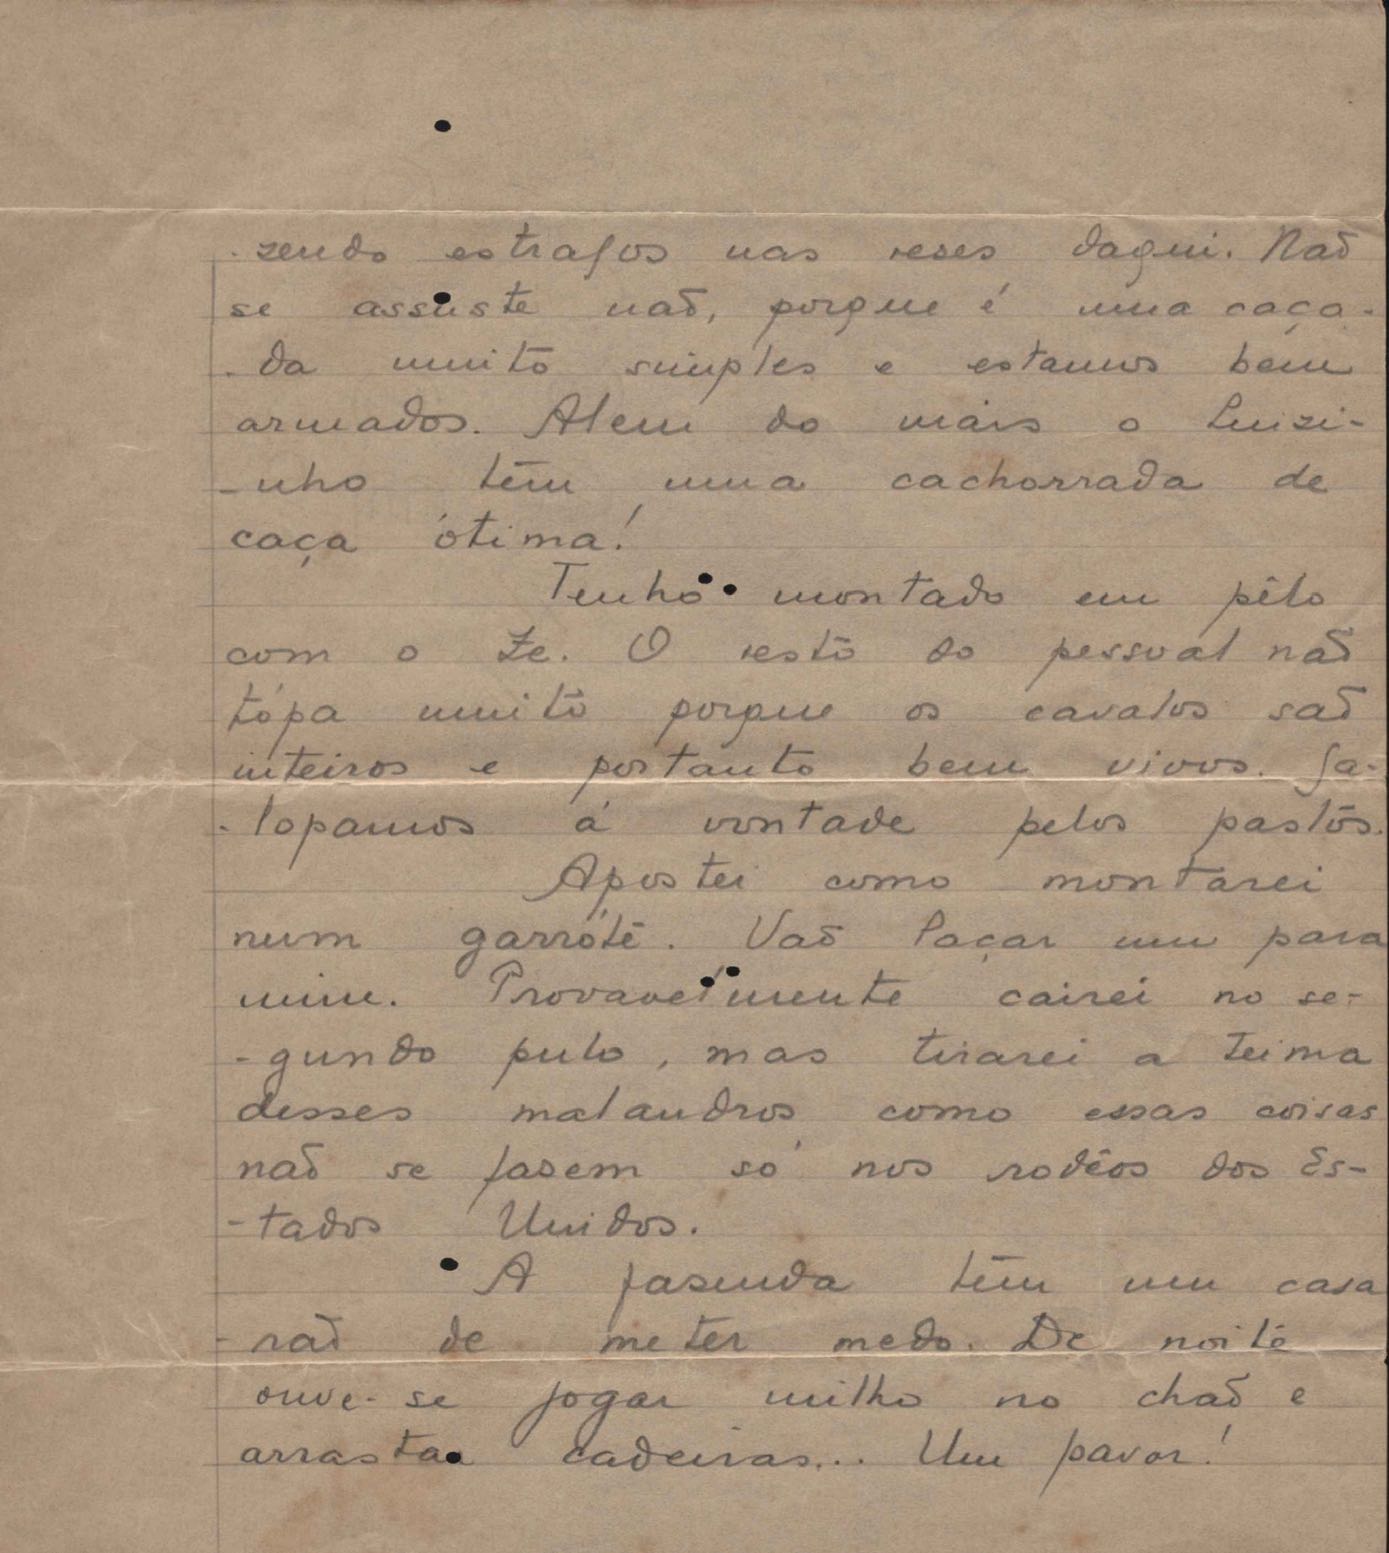 -zendo estragos nas reses daqui. Naõ
se assuste naõ, porque é uma caça-
-da muito simples e estamos bem
armados. Alem do mais o Luizi-
-nho têm uma cachorrada de
caça ótima!
Tenho montado em pêlo
com o Ze. O resto do pessoal naõ
tópa muito porque os cavalos saõ
inteiros e portanto bem vivos. Ga-
-lopamos á vontade pelos pastos.
Apostei como montarei
num garróte. Vaõ laçar um para
mim. Provavelmente cairei no se-
-gundo pulo, mas tirarei a teima
desses malandros como essas coisas
naõ se fasem só nos rodêos dos Es-
-tados Unidos.
A fasenda têm um casa
-raõ de meter medo. De noite
ouve-se jogar milho no chaõ e
arrastar cadeiras... Um pavor!